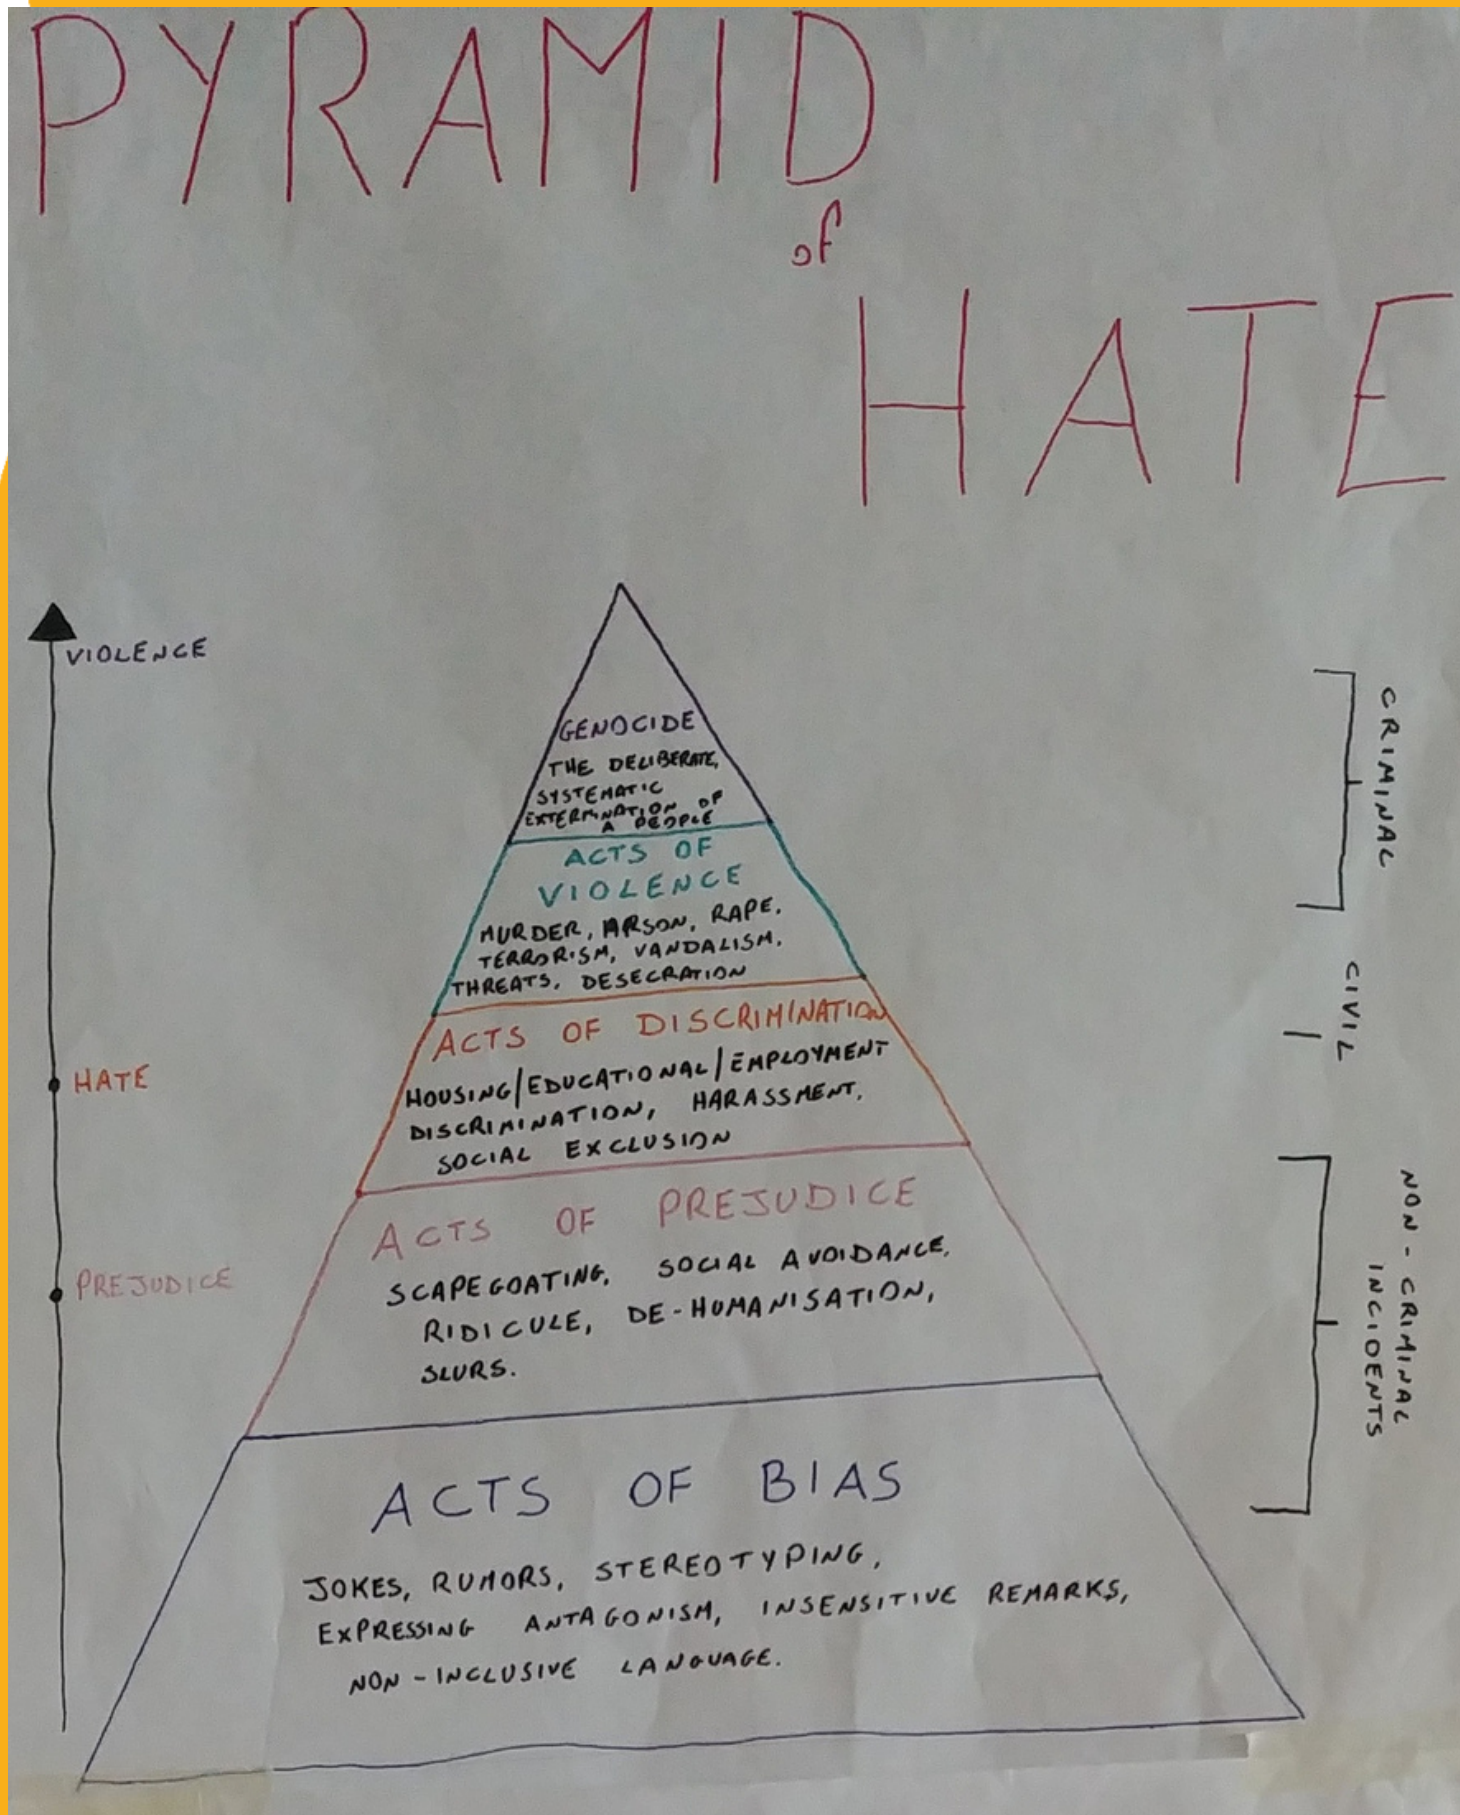 PYRAMID
of
HATE
VIOLENCE
HATE
PREJUDICE
GENOCIDE
THE DELIBERATE,
SYSTEMATIC
EXTERMINATION OF
A PEOPLE
ACTS OF
VIOLENCE
MURDER, ARSON, RAPE,
TERRORISM, VANDALISM,
THREATS, DESECRATION
ACTS OF DISCRIMINATION
HOUSING/EDUCATIONAL/EMPLOYMENT
DISCRIMINATION, HARASSMENT,
SOCIAL EXCLUSION
ACTS OF PREJUDICE
SCAPEGOATING, SOCIAL AVOIDANCE,
RIDICULE, DE-HUMANISATION,
SLURS.
ACTS OF BIAS
JOKES, RUMORS, STEREOTYPING,
EXPRESSING ANTAGONISM, INSENSITIVE REMARKS,
NON-INCLUSIVE LANGUAGE.
CRIMINAL
CIVIL
NON-CRIMINAL
INCIDENTS